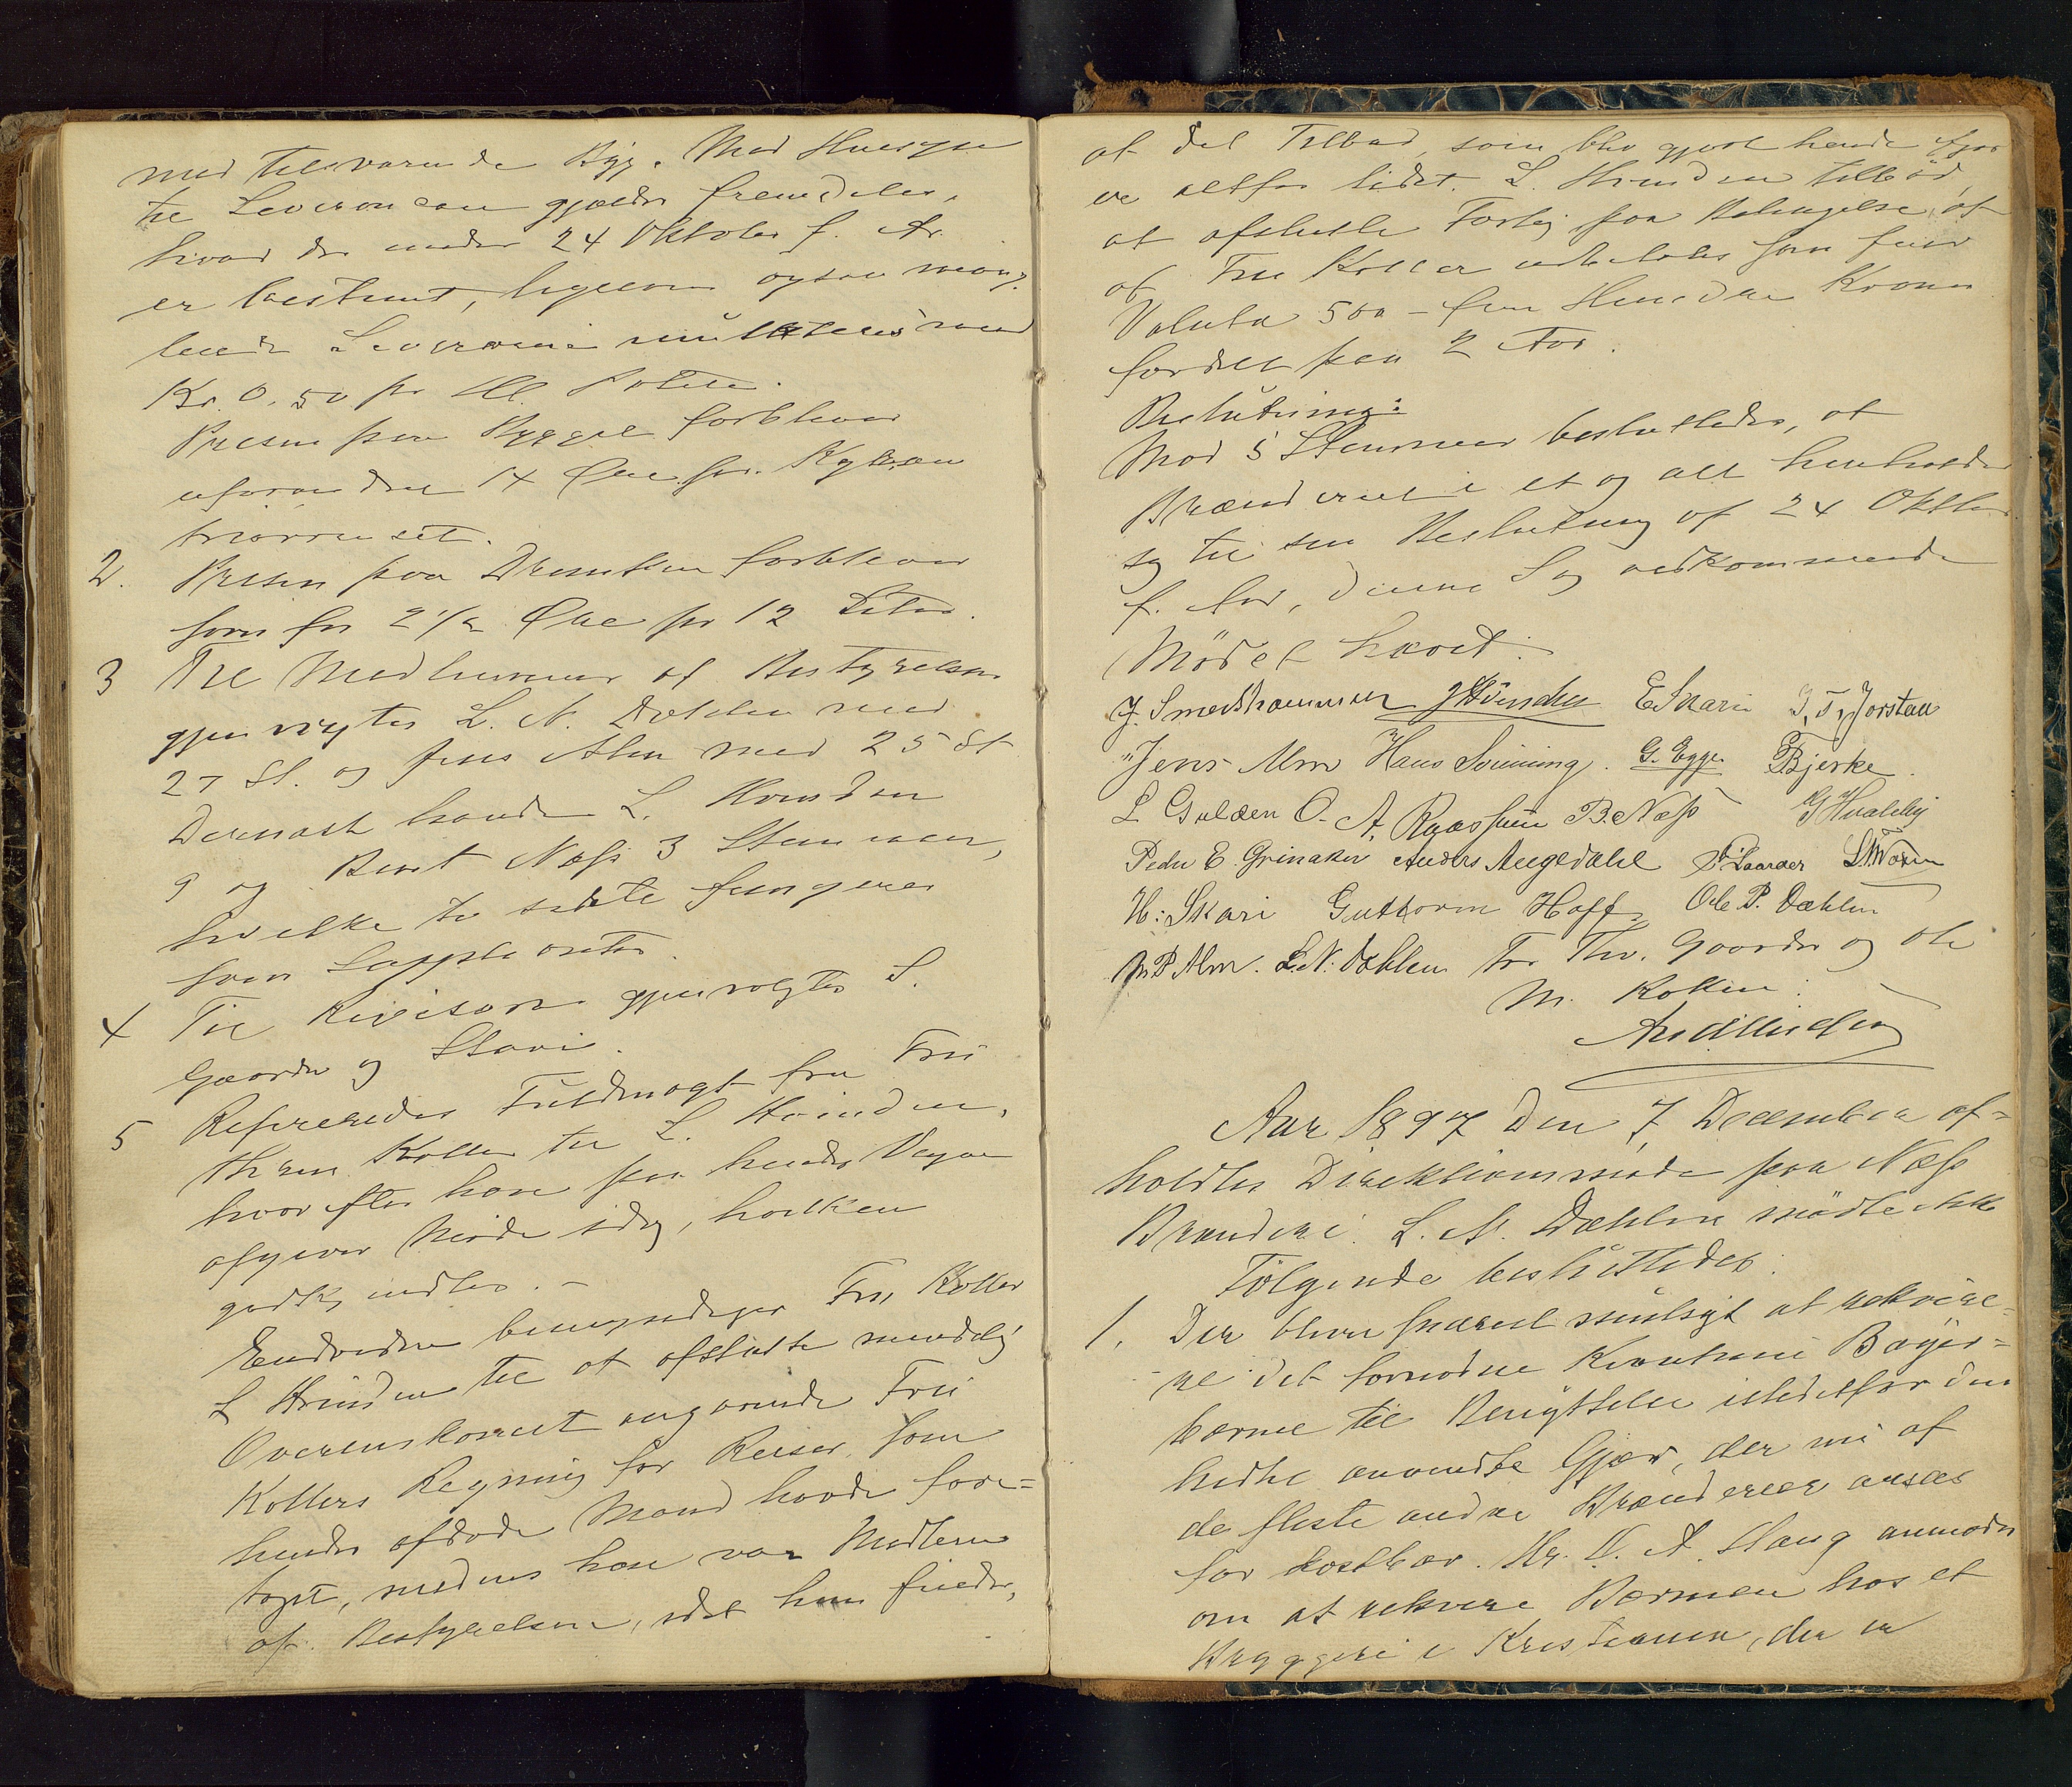 med tilsvarende Byg. Med Hensyn
til Leverancen gjælder fremdeles,
hvad der under 24 Oktober f. Ar.
er bestemt, ligesom ogsaa mang-
lende Leverance mulkteres med
Kr. 0,50 pr Hl. Potete.
Prisen paa Bygget forbliver
uforandret 14 Øre pr. Kg
2. Prisen paa Dranken forbliver
som før 2 1/2 Øre pr 12 Liter.
3 Til Medlemmer af Bestyrelsen
gjenvalgtes L. N. Dæhlen med
27 St. og Jens Alm med 25 St
Dernæst havde L. Hvinden
9 og Bernt Næss 3 Stemmer,
hvilke to sidste fungerer
som Suppleanter.
4 Til Revisorer gjenvalgtes S.
Gaarder og Skari.
5 Refereredes Fuldmagt fra Fru
Koller til L. Hvinden,
hvorefter han paa hendes Vegne
afgiver Møde idag, hvilken
godkjendtes. –
Endvidere bemyndiger Fru Koller
L Hvinden til at afslutte mindelig
Overenskomst angaaende Fru
Kollers Regning for Reiser, som
hendes afdøde Mand havde fore-
taget, medens han var Medlem
af Bestyrelsen, idet hun finder,
at det Tilbud, som blev gjort hende ifjor
er altfor lidet. L. Hvinden tilbød,
at afslutte Forlig paa Betingelse, af
at Fru Koller udbetales som fuld
Valuta 500 – fem Hundre Kroner
fordelt paa 2 Aar.
Beslutning:
Mod 5 Stemmer besluttedes, at
Brænderiet i et og alt henholder
sig til sin Beslutning af 24 Oktbr
f. Aar, denne Sag vedkommende
Mødet hævet.
J. Smedshammer JHvinden E Skari T. Jorstad
Jens Alm Hans Svinning. G. Egge Bjerke
L Gulden O. A. Raassum B. Næss G Hvaleby
Peder E. Grinaker Anders Augedahl S. Gaarder
H: Skari Guttorm Hoff Ole P. Dæhlen
M. P Alm. L. N. Dæhlen For Thv. Gaarder og Ole
M. Koken:
Aar 1897 den 7 December af-
holdtes Direktionsmøde paa Næss
Brænderi. L. N. Dæhlen mødte ikke
Følgende besluttedes:
1. Der bliver snarest muligt at rekvire-
re det fornødne Kvantum Bayer-
bærme til Benyttelse istedetfor den
hidtil anvendte Gjær, der nu af
de fleste andre Brænderier ansees
for kostbar. Hr. N. A. Haug anmodes
om at rekvirere Bærmen hos et
Bryggeri i Kristiania, der er